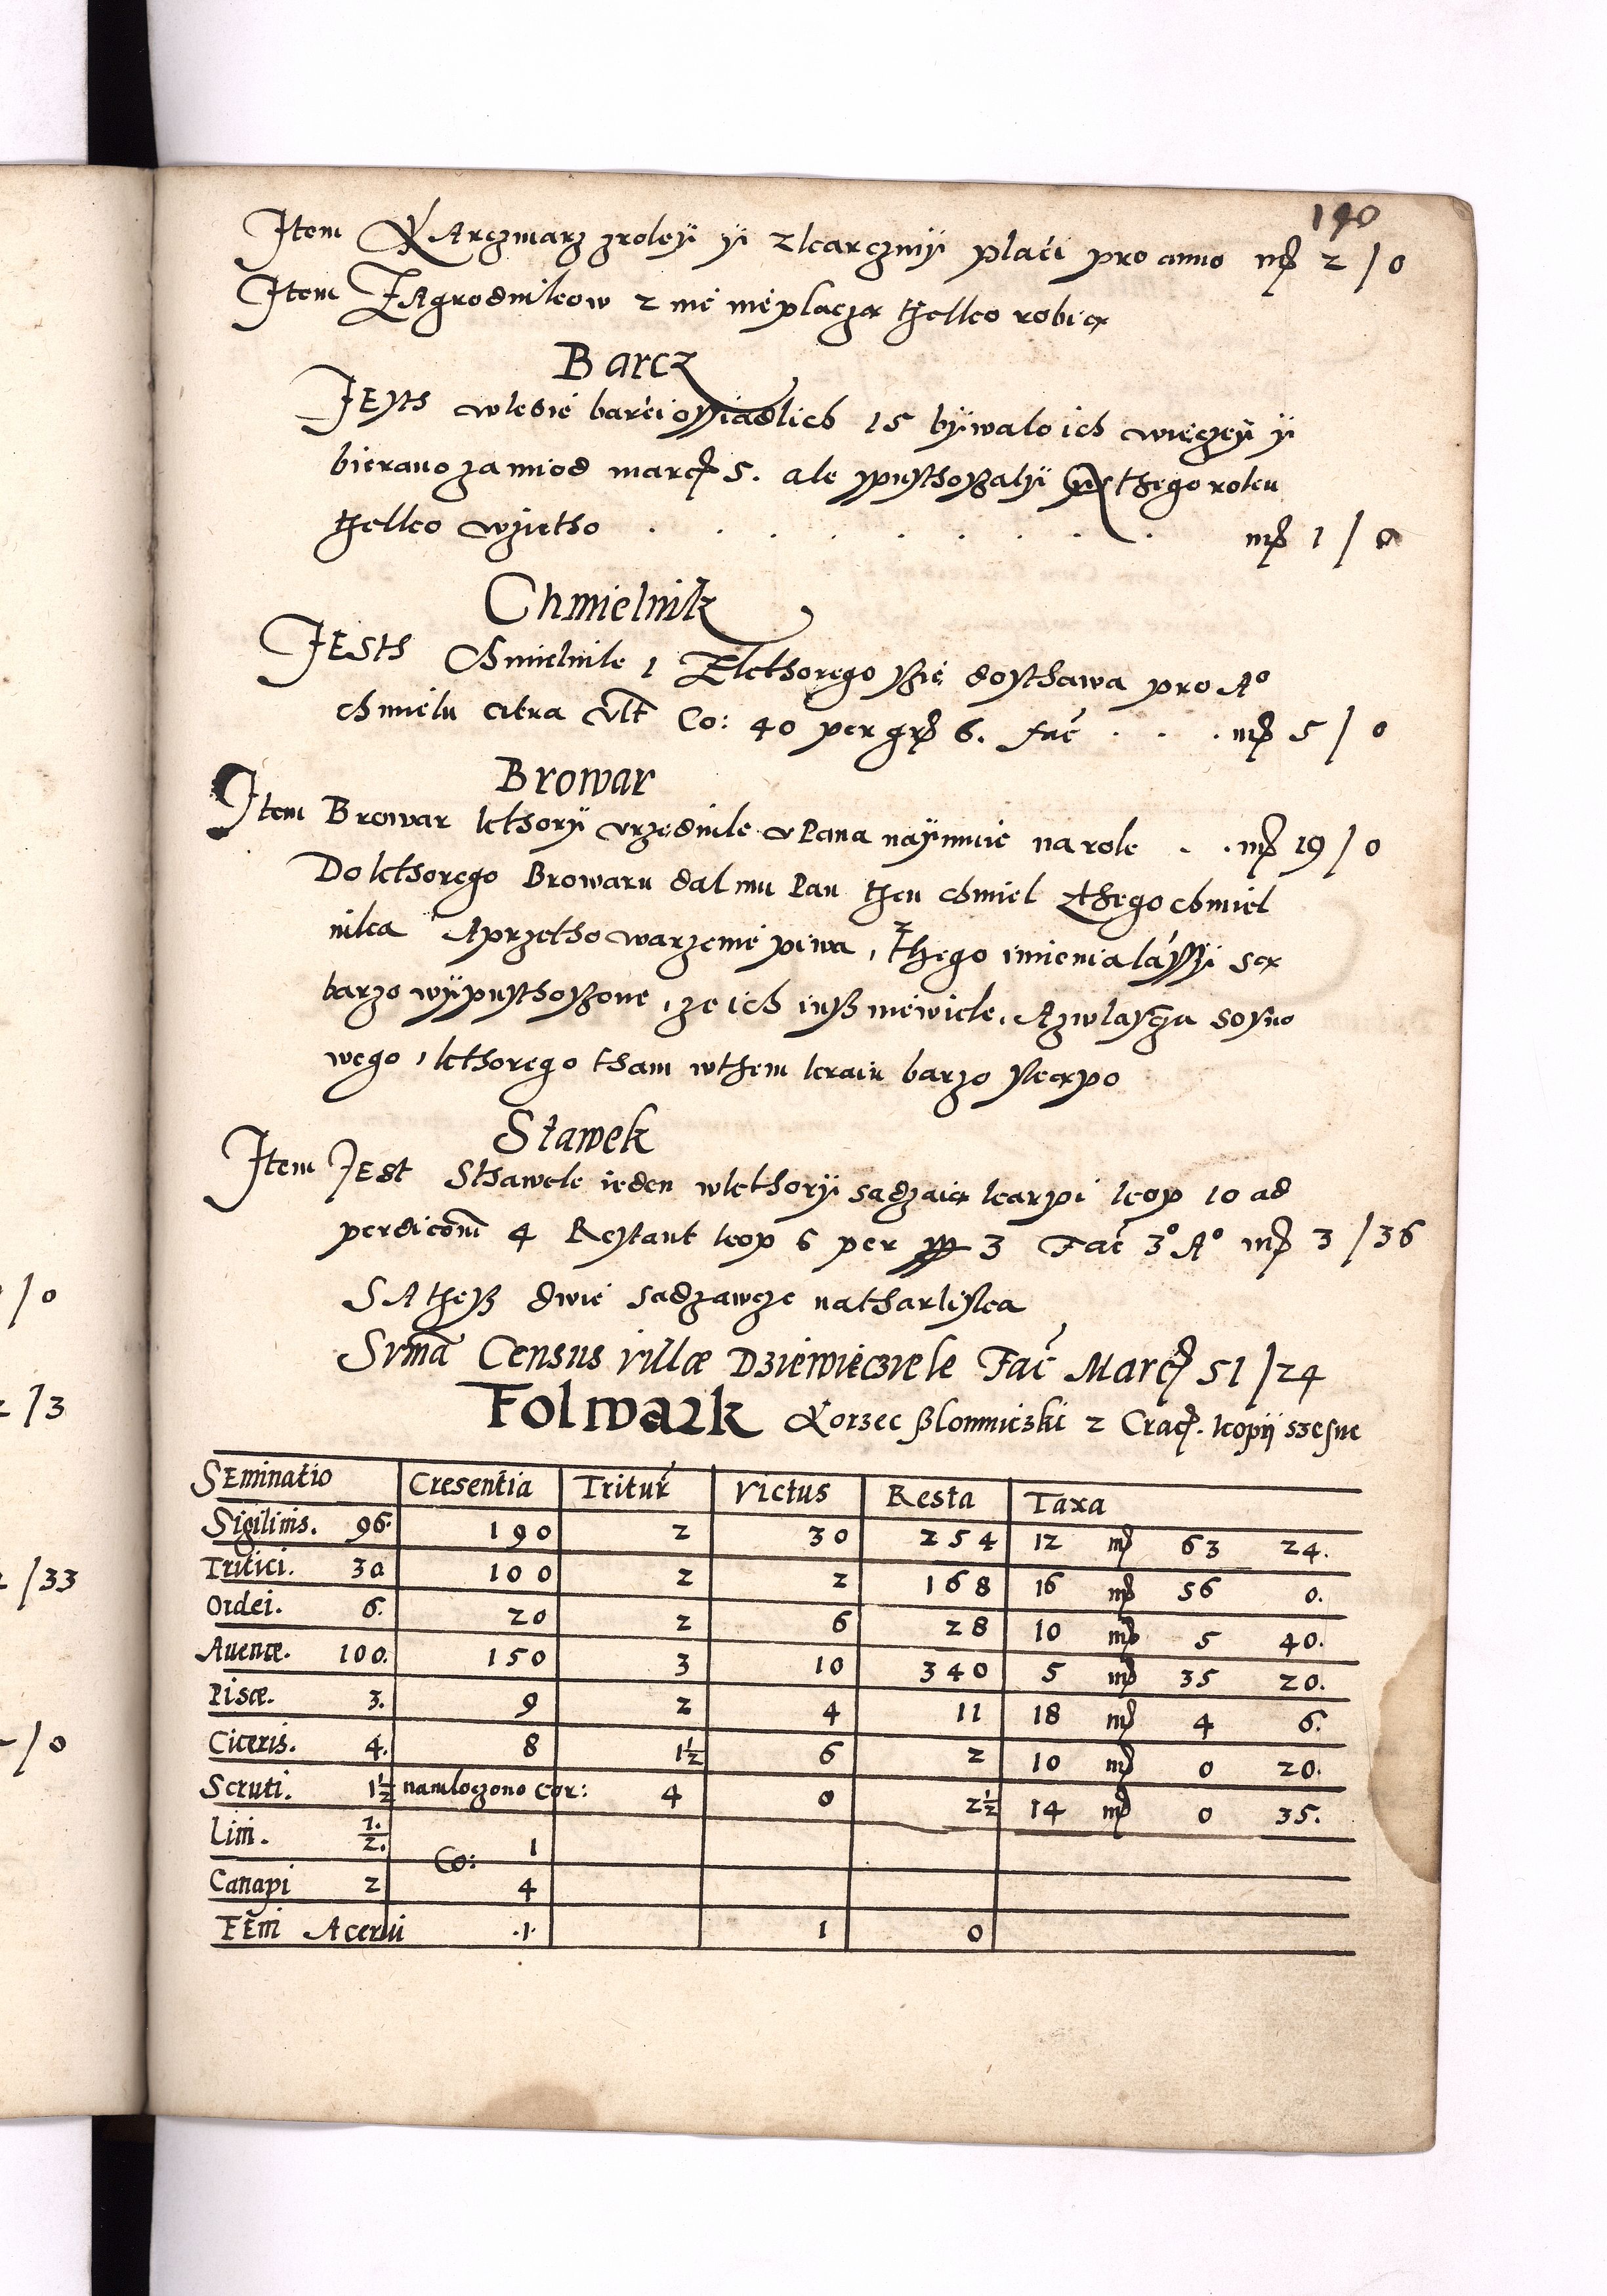 190
Item KArczmarz zroleÿ ÿ zkarczmÿ płaći pro anno mr̃ 2 / 0
Item ZAgrodnikow 2 nić nie płacza thÿlko robia
Barcz
JEsth wlesie barći ossiadlich 15 bÿwało ich wieczeÿ ÿ
bierano za miod marc̃ 5. ale spusthoszalÿ thego roku
thÿlko wzietho . . . . . . . . mr̃ 1 / 0
Chmielnik
JESth Chmielnik 1 Zkthorego szie dosthawa pro Aº
chmielu citra vlt̃ Co: 40 per gr̃ 6. Fać . . . mr̃ 5 / 0
Browar
Item Browar kthorÿ vrzednik v Pana naÿmuie na rok . . mr̃ 19 / 0
Do kthorego Browaru dal mu Pan then chmiel z thego chmiel
nika Aprzetho warzenie piwa, z thego imienia lássÿ sa
barzo wÿpusthoszone, ze ich iusz niewiele, Azwlascza sosno
wego, kthorego tham wthem kraiu barzo skapo
Stawek
Item JEst Sthawek ieden wkthorÿ sadzaia karpi kop 10 ad
perdicom̃ 4 Restant kop 6 per 3 Fać 3º Aº mr̃ 3 / 36
SA thesz dwie sadzawcze na tharliska
Sum̃a Census villæ Dziewieczÿele Fać Marc̃ 51 / 24
Folwark Korzec Slomniczski 2 Crac̃. kopÿ szesne
SEminatio Cresentia Tritur̃ Victus Resta Taxa
Sigilinis. 96. 190 2 30 254 12 mr̃ 63 24.
Tritici. 30 100 2 2 168 16 mr̃ 56 0.
Ordei. 6. 20 2 6 28 10 mr̃ 5 40.
Auenæ. 100. 150 3 10 340 5 mr̃ 35 20.
Pisæ. 3. 9 2 4 11 18 mr̃ 4 6.
Ciceris. 4. 8 1½ 6 2 10 mr̃ 0 20.
Scruti. 1½ namloczono Cor: 4 0 2½ 14 mr̃ 0 35.
Lini. ½. Co: 1
Canapi 2 4
FE̅ni Acerui .1. 1 0
/ 0
/ 3
/ 33
/ 0